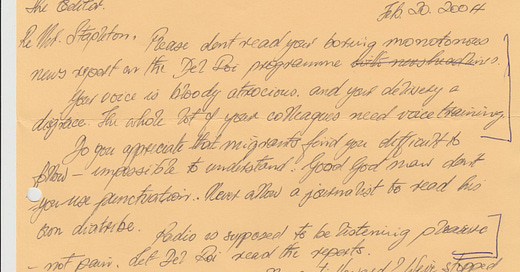 The Editor.
Feb. 20. 2004
Re Mr. Stapleton. Please dont read your boring monotonous
news report on the Dez Doi programme
Your voice is bloody atrocious, and your delivery a
disgrace. The whole lot of your colleagues need voice training
Do you appreciate that migrants find you difficult to
follow - impossible to understand. Good God man dont
you use punctuation. Never allow a journalist to read his
own diatribe.
Radio is supposed to be listening pleasure
- not pain. Let Dez Doi read the reports.
stopped